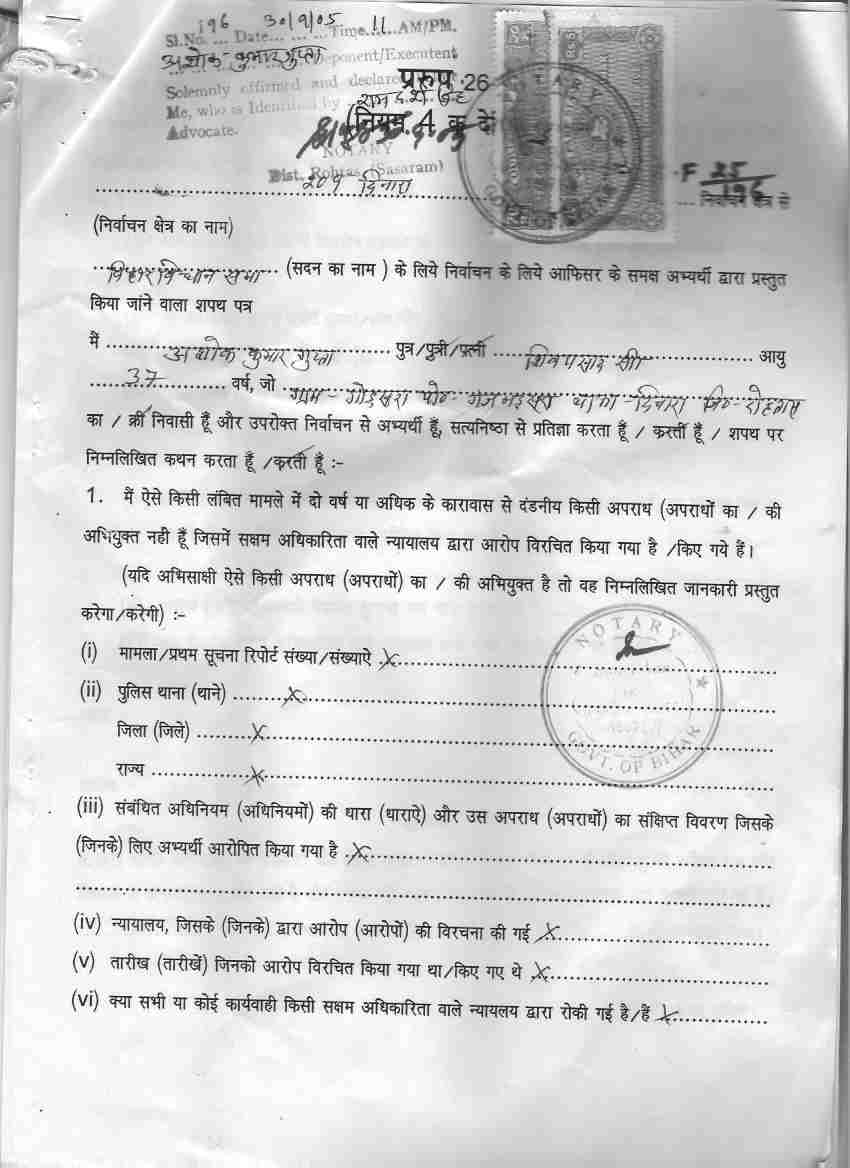 Sl.No. 196 Date 30/9/05 Time 11 AM/PM.
अशोक कुमार गुप्ता Deponent/Executent
Solemnly affirmed and declared
Me, who is Identified by
Advocate.
NOTARY
Dist. Rohtas (Sasaram)
NOTARY
GOVT. OF BIHAR
प्ररुप 26
(नियम 4 क दे
F 25/196
209 दिनारा निर्वाचन क्षेत्र से
(निर्वाचन क्षेत्र का नाम)
बिहार विधान सभा (सदन का नाम ) के लिये निर्वाचन के लिये आफिसर के समक्ष अभ्यर्थी द्वारा प्रस्तुत
किया जांने वाला शपथ पत्र
में अशोक कुमार गुप्ता पुत्र/पुत्री/पत्नी शिव प्रसाद आयु
37 वर्ष, जो ग्राम- पो०- थाना- दिनारा जि०- रोहतास
का / क्री निवासी हूँ और उपरोक्त निर्वाचन से अभ्यर्थी हूँ, सत्यनिष्ठा से प्रतिज्ञा करता हूँ / करतीं हूँ / शपथ पर
निम्नलिखित कथन करता हूँ /करती हूँ :-
1. मैं ऐसे किसी लंबित मामले में दो वर्ष या अधिक के कारावास से दंडनीय किसी अपराध (अपराधों का / की
अभियुक्त नही हूँ जिसमें सक्षम अधिकारिता वाले न्यायालय द्वारा आरोप विरचित किया गया है /किए गये हैं।
(यदि अभिसाक्षी ऐसे किसी अपराध (अपराधों) का / की अभियुक्त है तो वह निम्नलिखित जानकारी प्रस्तुत
करेगा/करेगी) :-
(i) मामला/प्रथम सूचना रिपोर्ट संख्या/संख्याऐ X
(ii) पुलिस थाना (थाने) X
जिला (जिले) X
राज्य X
NOTARY
GOVT. OF BIHAR
(iii) संबंधित अधिनियम (अधिनियमों) की धारा (धाराऐ) और उस अपराध (अपराधों) का संक्षिप्त विवरण जिसके
(जिनके) लिए अभ्यर्थी आरोपित किया गया है X
(iv) न्यायालय, जिसके (जिनके) द्वारा आरोप (आरोपों) की विरचना की गई X
(v) तारीख (तारीखें) जिनको आरोप विरचित किया गया था/किए गए थे X
(vi) क्या सभी या कोई कार्यवाही किसी सक्षम अधिकारिता वाले न्यायलय द्वारा रोकी गई है/हैं X